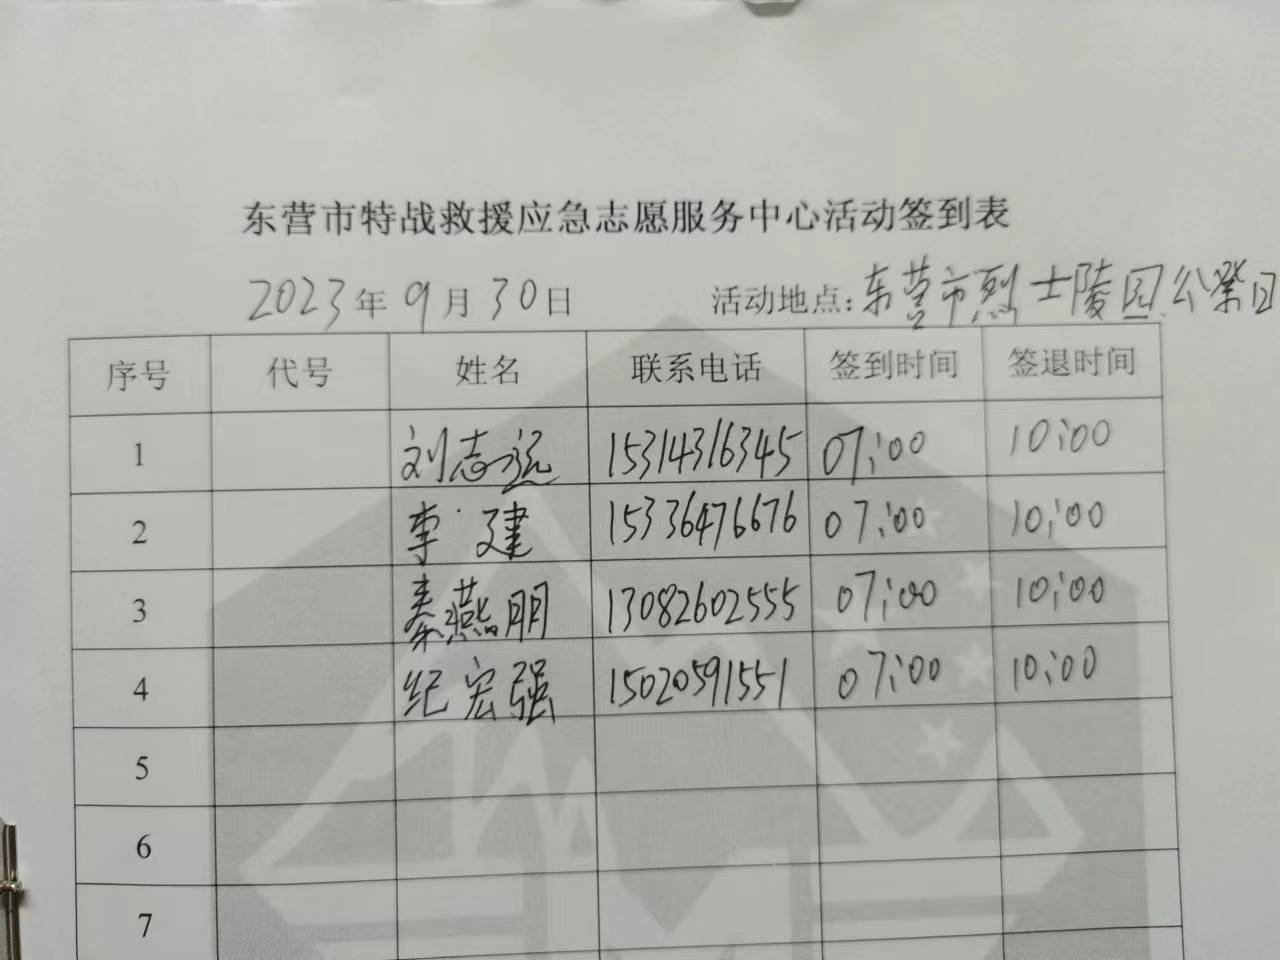 东营市特战救援应急志愿服务中心活动签到表
2023年9月30日 活动地点:东营市烈士陵园公祭日
序号 代号 姓名 联系电话 签到时间 签退时间
1 刘志远 15314316345 07:00 10:00
2 李建 15336476676 07:00 10:00
3 秦燕朋 13082602555 07:00 10:00
4 纪宏强 15020591551 07:00 10:00
5
6
7